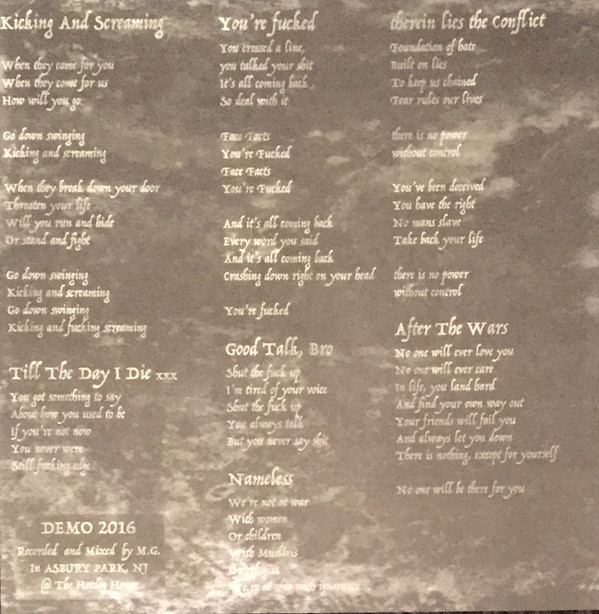 Kicking And Screaming
When they come for you
When they come for us
How will you go
Go down swinging
Kicking and screaming
When they break down your door
Threaten your life
Will you run and hide
Or stand and fight
Go down swinging
Kicking and screaming
Go down swinging
Kicking and fucking screaming
Till The Day I Die xxx
You got something to say
About how you used to be
If you're not now
You never were
Still fucking edge
DEMO 2016
Recorded and Mixed by M.G.
In ASBURY PARK, NJ
@ The
You're fucked
You crossed a line,
you talked your shit
It's all coming back,
So deal with it
Face Facts
You're Fucked
Face Facts
You're Fucked
And it's all coming back
Every word you said
And it's all coming back
Crashing down right on your head
You're fucked
Good Talk, Bro
Shut the fuck up
I'm tired of your voice
Shut the fuck up
You always talk
But you never say shit
Nameless
We're not at war
With women
Or children
With Muslims
We're at war with ignorance
therein lies the Conflict
Foundation of hate
Built on lies
To keep us chained
Fear rules our lives
there is no power
without control
You've been deceived
You have the right
No mans slave
Take back your life
there is no power
without control
After The Wars
No one will ever love you
No one will ever care
In life, you land hard
And find your own way out
Your friends will fail you
And always let you down
There is nothing, except for yourself
No one will be there for you